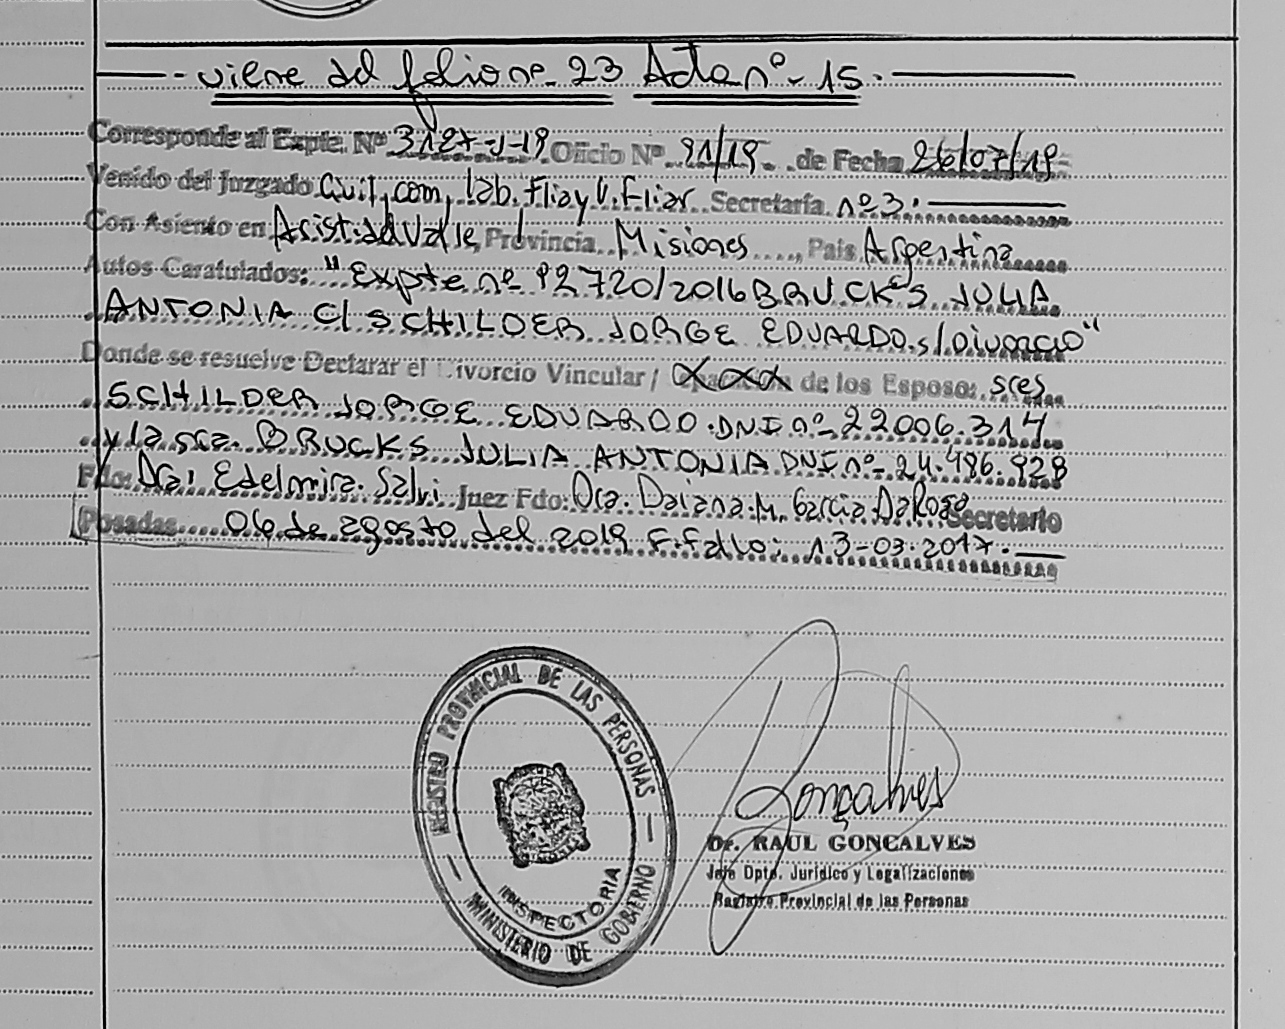 viene del folio nº- 23 Acta nº- 15.
Corresponde al Expte. Nº 3127-J-19 Oficio Nº 91/19 de Fecha 26/07/19
Venido del Juzgado Civil, com, lab. Flia y V. Fliar Secretaría nº3.
Con Asiento en Arist. del Valle, Provincia Misiones ...., País Argentina
Autos Caratulados: "Expte nº 92720/2016 BRUCKS JULIA
ANTONIA C/ SCHILDER JORGE EDUARDO s/ Divorcio"
Donde se resuelve Declarar el Divorcio Vincular / de los Esposo: sres
SCHILDER JORGE EDUARDO. DNI nº 22006.314
y la sra. BRUCKS JULIA ANTONIA DNI nº- 24.486.928
Fdo: Dra: Edelmira. Salvi Juez Fdo: Dra. Daiana. M. Garcia Da Rosa Secretario
Posadas 06 de agosto del 2019 F. Fallo: 13-03-2017.
REGISTRO PROVINCIAL DE LAS PERSONAS
INSPECTORIA
MINISTERIO DE GOBIERNO
Gonçalves
Dr. RAUL GONCALVES
Jefe Dpto. Jurídico y Legalizaciones
Registro Provincial de las Personas